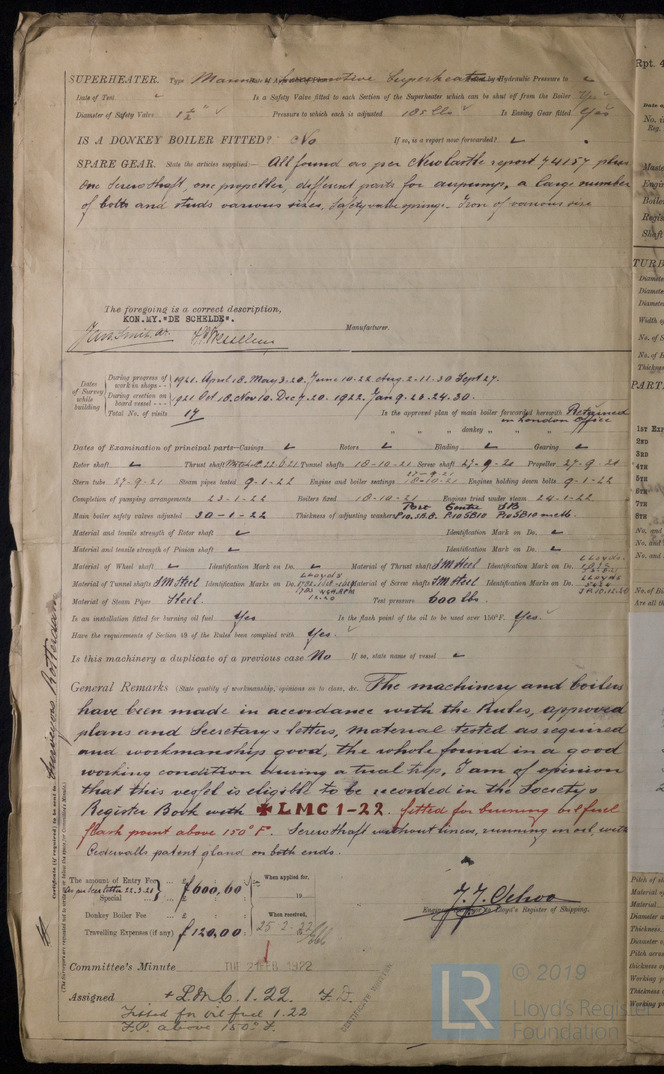 SUPERHEATER. Type Marine Locomotive Superheater Tested by Hydraulic Pressure to ✓
Date of Test ✓ Is a Safety Valve fitted to each Section of the Superheater which can be shut off from the Boiler Yes
Diameter of Safety Valve 1½" ✓ Pressure to which each is adjusted 185 lbs ✓ Is Easing Gear fitted Yes
IS A DONKEY BOILER FITTED? No If so, is a report now forwarded? ✓
SPARE GEAR. State the articles supplied:— All found as per Newcastle report 74157 plus
one screw shaft, one propeller, different parts for airpump, a large number
of bolts and studs various sizes. Safety valve springs. Iron of various size
The foregoing is a correct description,
KON.MY."DE SCHELDE".
Manufacturer.
Dates of Survey while building
During progress of work in shops - - 1921. April 18. May 3. 20. June 10. 22 Aug. 2. 11. 30 Sept 27.
During erection on board vessel - - - 1921 Oct 18. Nov 10. Dec 7. 20. 1922. Jan 9. 23. 24. 30.
Total No. of visits 17 Is the approved plan of main boiler forwarded herewith Retained in London Office
" " " donkey " " "
Dates of Examination of principal parts—Casings ✓ Rotors ✓ Blading ✓ Gearing ✓
Rotor shaft ✓ Thrust shaft Mitchell 22.6.21 Tunnel shafts 18-10-21 Screw shaft 27-9-21 Propeller 27-9-21
Stern tube 27-9-21 Steam pipes tested 9-1-22 Engine and boiler seatings 27-9-21 18-10-21 Engines holding down bolts 9-1-22
Completion of pumping arrangements 23-1-22 Boilers fixed 18-10-21 Engines tried under steam 24-1-22
Main boiler safety valves adjusted 30-1-22 Thickness of adjusting washers Port Centre SB
Material and tensile strength of Rotor shaft ✓ Identification Mark on Do. ✓
Material and tensile strength of Pinion shaft ✓ Identification Mark on Do. ✓
Material of Wheel shaft ✓ Identification Mark on Do. ✓ Material of Thrust shaft S M Steel Identification Mark on Do. Lloyds
Material of Tunnel shafts S M Steel Identification Marks on Do. Lloyds Material of Screw shafts S M Steel Identification Marks on Do. Lloyds
Material of Steam Pipes Steel. Test pressure 600 lbs.
Is an installation fitted for burning oil fuel Yes Is the flash point of the oil to be used over 150°F. Yes.
Have the requirements of Section 49 of the Rules been complied with Yes.
Is this machinery a duplicate of a previous case No If so, state name of vessel ✓
General Remarks (State quality of workmanship, opinions as to class, &c. The machinery and boilers
have been made in accordance with the Rules, approved
plans and Secretarys letters, material tested as required
and workmanship good, the whole found in a good
working condition during a trial trip. I am of opinion
that this vessel is eligible to be recorded in the Society's
Register Book with ✠LMC 1-22. fitted for burning oil fuel
flash point above 150°F. Screw shaft without liners, running in oil, with
Cederwalls patent gland on both ends.
Certificate (if required) to be sent to Surveyors Rotterdam
(The Surveyors are requested not to write on or below the space for Committee's Minute.)
The amount of Entry Fee
as per Secr letter 22.3.21
Special £600,60 When applied for,
19
Donkey Boiler Fee When received,
Travelling Expenses (if any) £120,00 25.2.22
Engineer Surveyor to Lloyd's Register of Shipping.
Committee's Minute TUE 21 FEB 1922
Assigned + LMC. 1.22. F.D.
Fitted for oil fuel 1.22
F.P. above 150° F.
CERTIFICATE WRITTEN
Rpt. 4
TURB
PART
1st Exp
2ND
3RD
4TH
5TH
6TH
7TH
8TH
LR © 2019
Lloyd's Register
Foundation